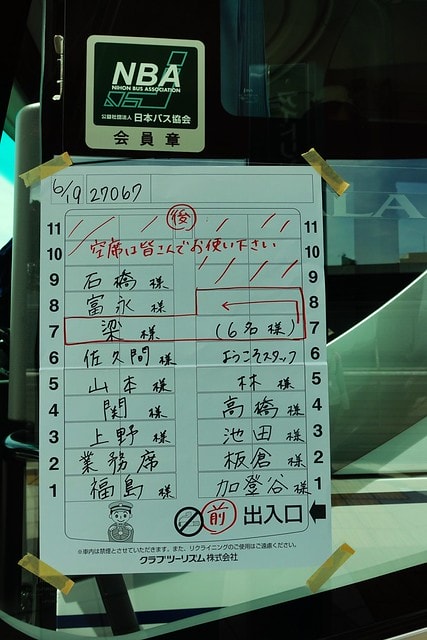 NBA
NIHON BUS ASSOCIATION
公益社団法人 日本バス協会
会員章
6/19 27067
11 後 11
10 空席は皆さんでお使い下さい 10
9 石橋様 9
8 富永様 8
7 梁様 (6名様) 7
6 佐久間様 ようこそスタッフ 6
5 山本様 林様 5
4 関様 高橋様 4
3 上野様 池田様 3
2 業務席 板倉様 2
1 福島様 加登谷様 1
前 出入口
※車内は禁煙とさせていただきます。また、リクライニングのご使用はご遠慮ください。
クラブツーリズム株式会社